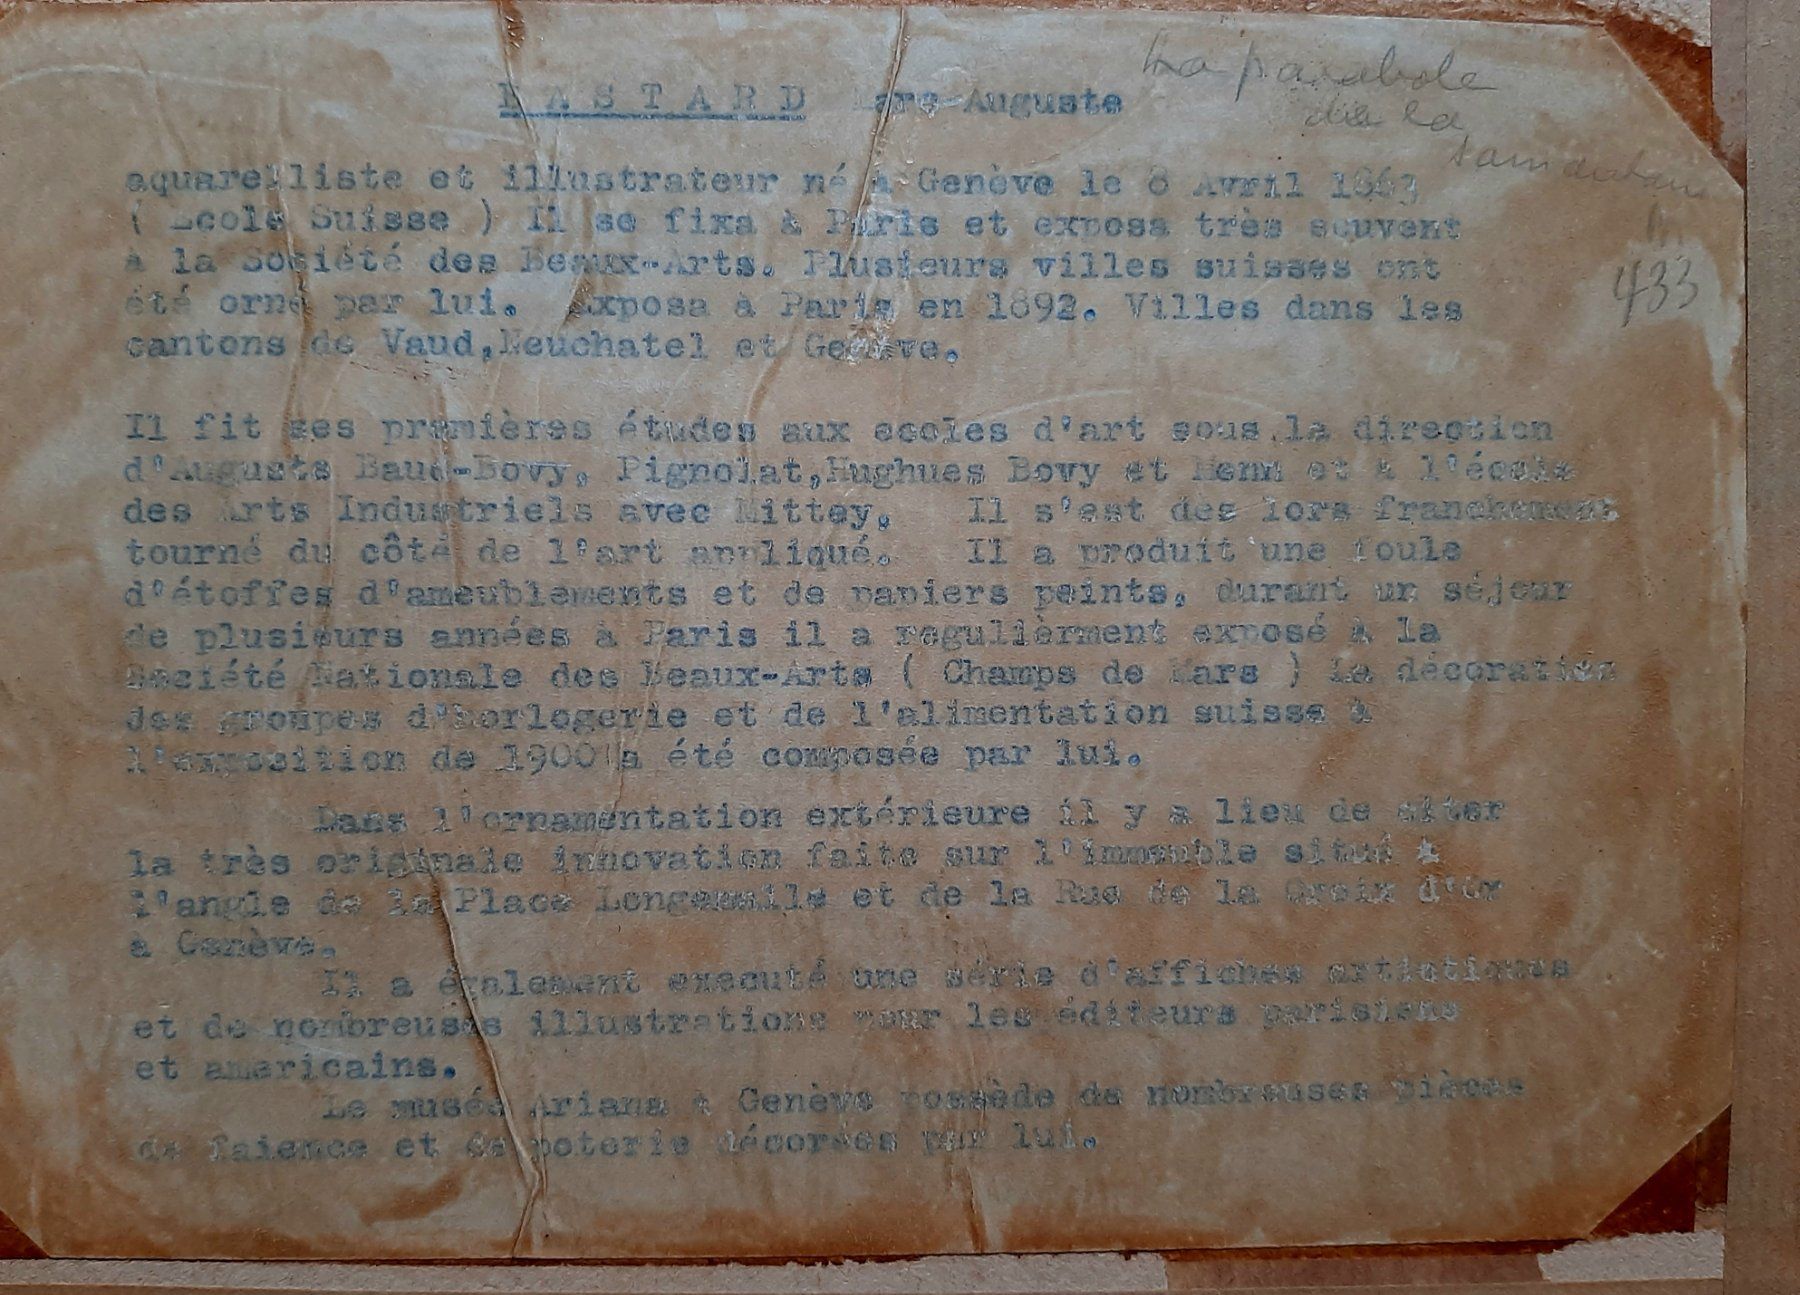 BASTARD Marc-Auguste
La parabole
de la
samaritaine
433
aquarelliste et illustrateur né à Genève le 8 Avril 1863
( Ecole Suisse ) Il se fixa à Paris et exposa très souvent
à la Société des Beaux-Arts. Plusieurs villes suisses ont
été orné par lui. Exposa à Paris en 1892. Villes dans les
cantons de Vaud,Neuchatel et Genève.
Il fit ses premières études aux ecoles d'art sous la direction
d'Auguste Baud-Bovy, Pignolat,Hughues Bovy et Menn et à l'école
des Arts Industriels avec Mittey. Il s'est des lors franchement
tourné du côté de l'art appliqué. Il a produit une foule
d'étoffes d'ameublements et de papiers peints, durant un séjour
de plusieurs années à Paris il a regulièrment exposé à la
Société Nationale des Beaux-Arts ( Champs de Mars ) la décoration
des groupes d'horlogerie et de l'alimentation suisse à
l'exposition de 1900 a été composée par lui.
Dans l'ornamentation extérieure il y a lieu de citer
la très originale innovation faite sur l'immeuble situé à
l'angle de la Place Longemalle et de la Rue de la Croix d'Or
à Genève.
Il a également executé une série d'affiches artistiques
et de nombreuses illustrations pour les éditeurs parisiens
et americains.
Le musée Ariana à Genève possède de nombreuses pièces
de faience et de poterie décorées par lui.